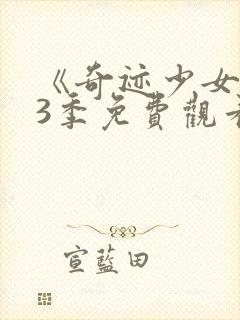 《奇迹少女
3季免費觀看
宣藍田